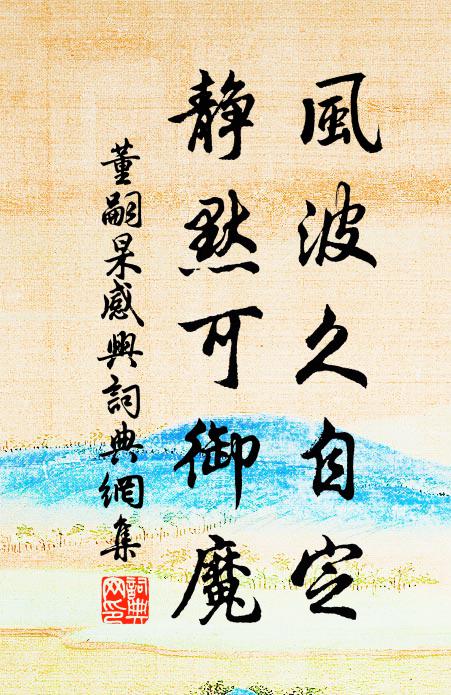 風波久自定
静默可御魔
董嗣杲感興詞典網集
詞典網印